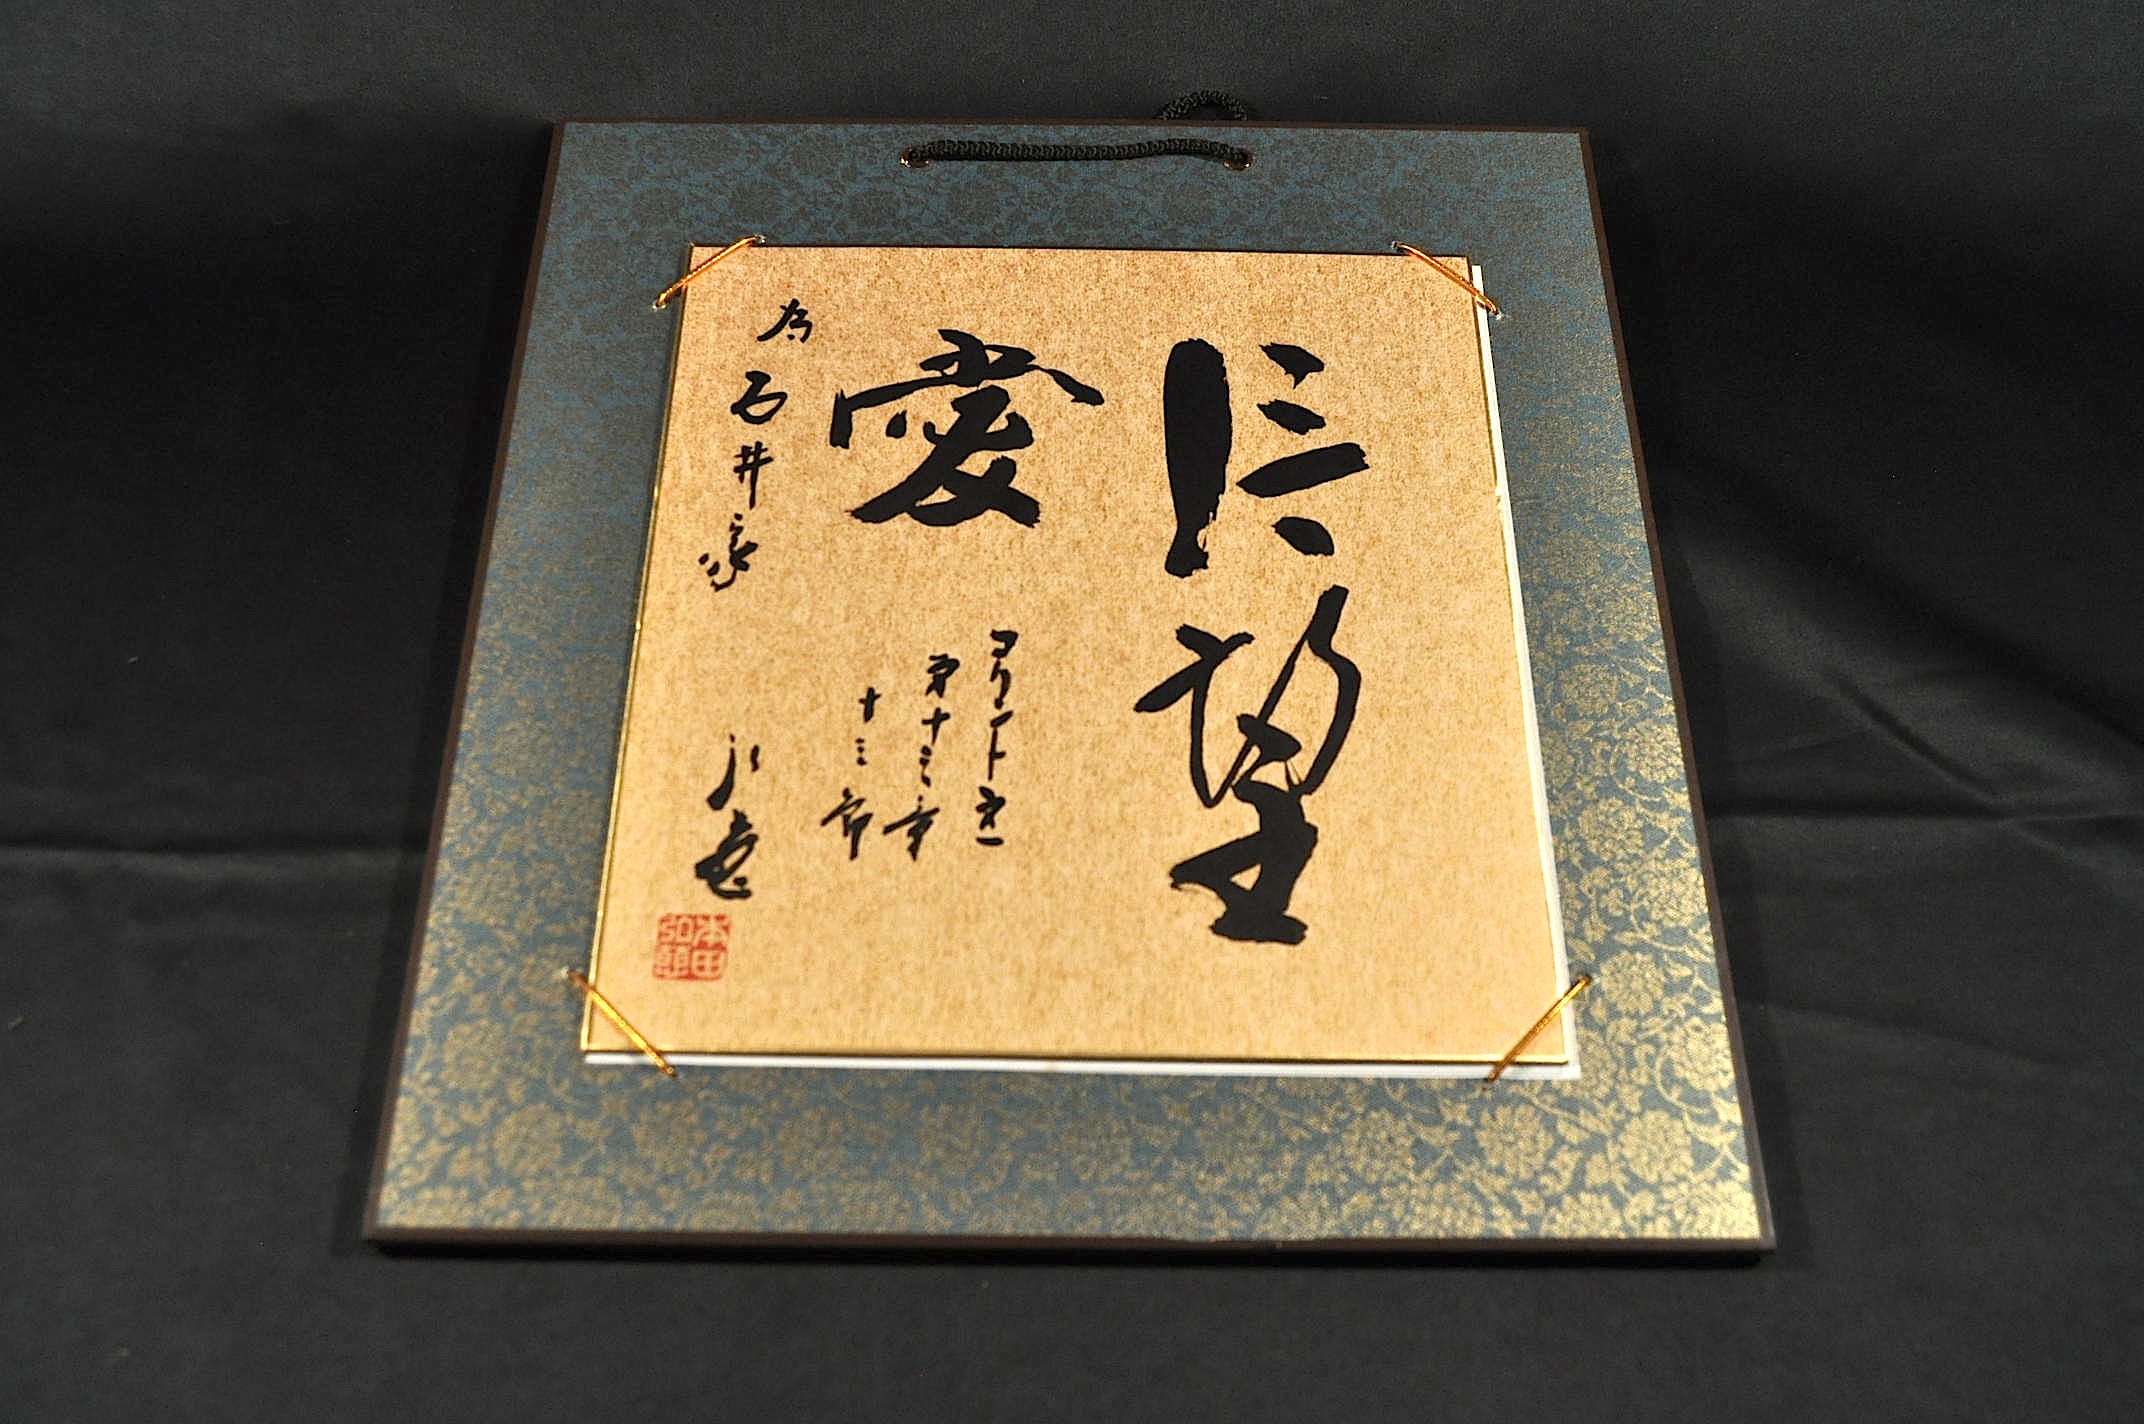 信望
愛
コリント前
第十三章
十三節
為石井家
弘慈
本田
弘慈